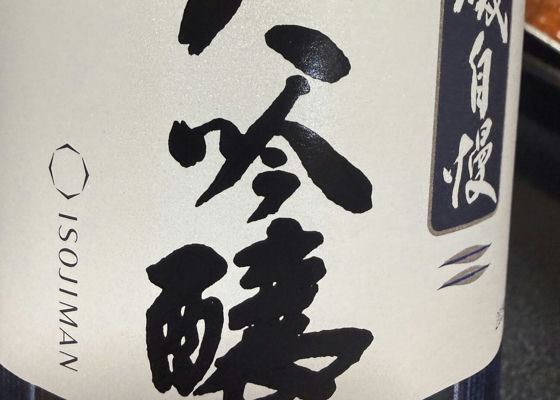 磯自慢
大吟醸
ISOJIMAN